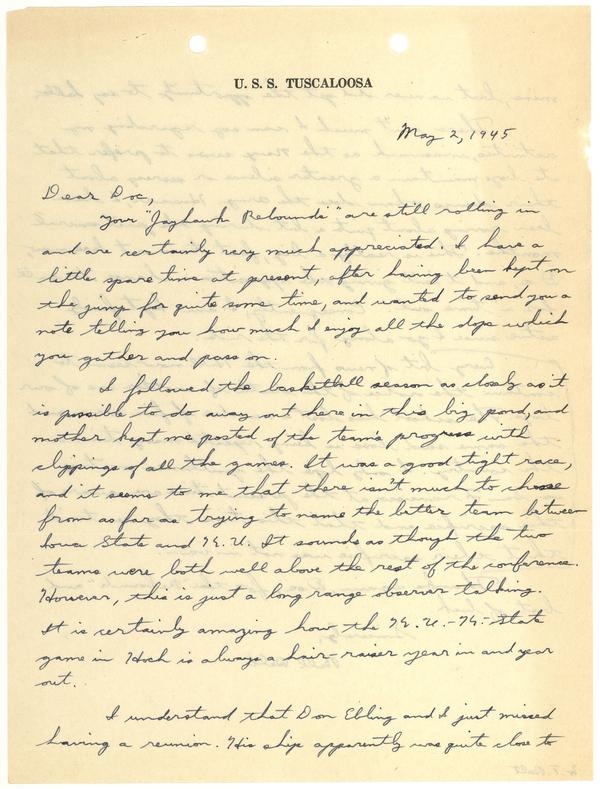 U. S. S. TUSCALOOSA
May 2, 1945
Dear Doc,
Your "Jayhawk Rebounds" are still rolling in
and are certainly very much appreciated. I have a
little spare time at present, after having been kept on
the jump for quite some time, and wanted to send you a
note telling you how much I enjoy all the dope which
you gather and pass on.
I followed the basketball season as closely as it
is possible to do away out here in this big pond, and
mother kept me posted of the team's progress with
clippings of all the games. It was a good tight race,
and it seems to me that there isn't much to choose
from as far as trying to name the better team between
Iowa State and K. U. It sounds as though the two
teams were both well above the rest of the conference.
However, this is just a long range observer talking.
It is certainly amazing how the K. U. - K - State
game in Hoch is always a hair-raiser year in and year
out.
I understand that Don Ebling and I just missed
having a reunion. His ship apparently was quite close to